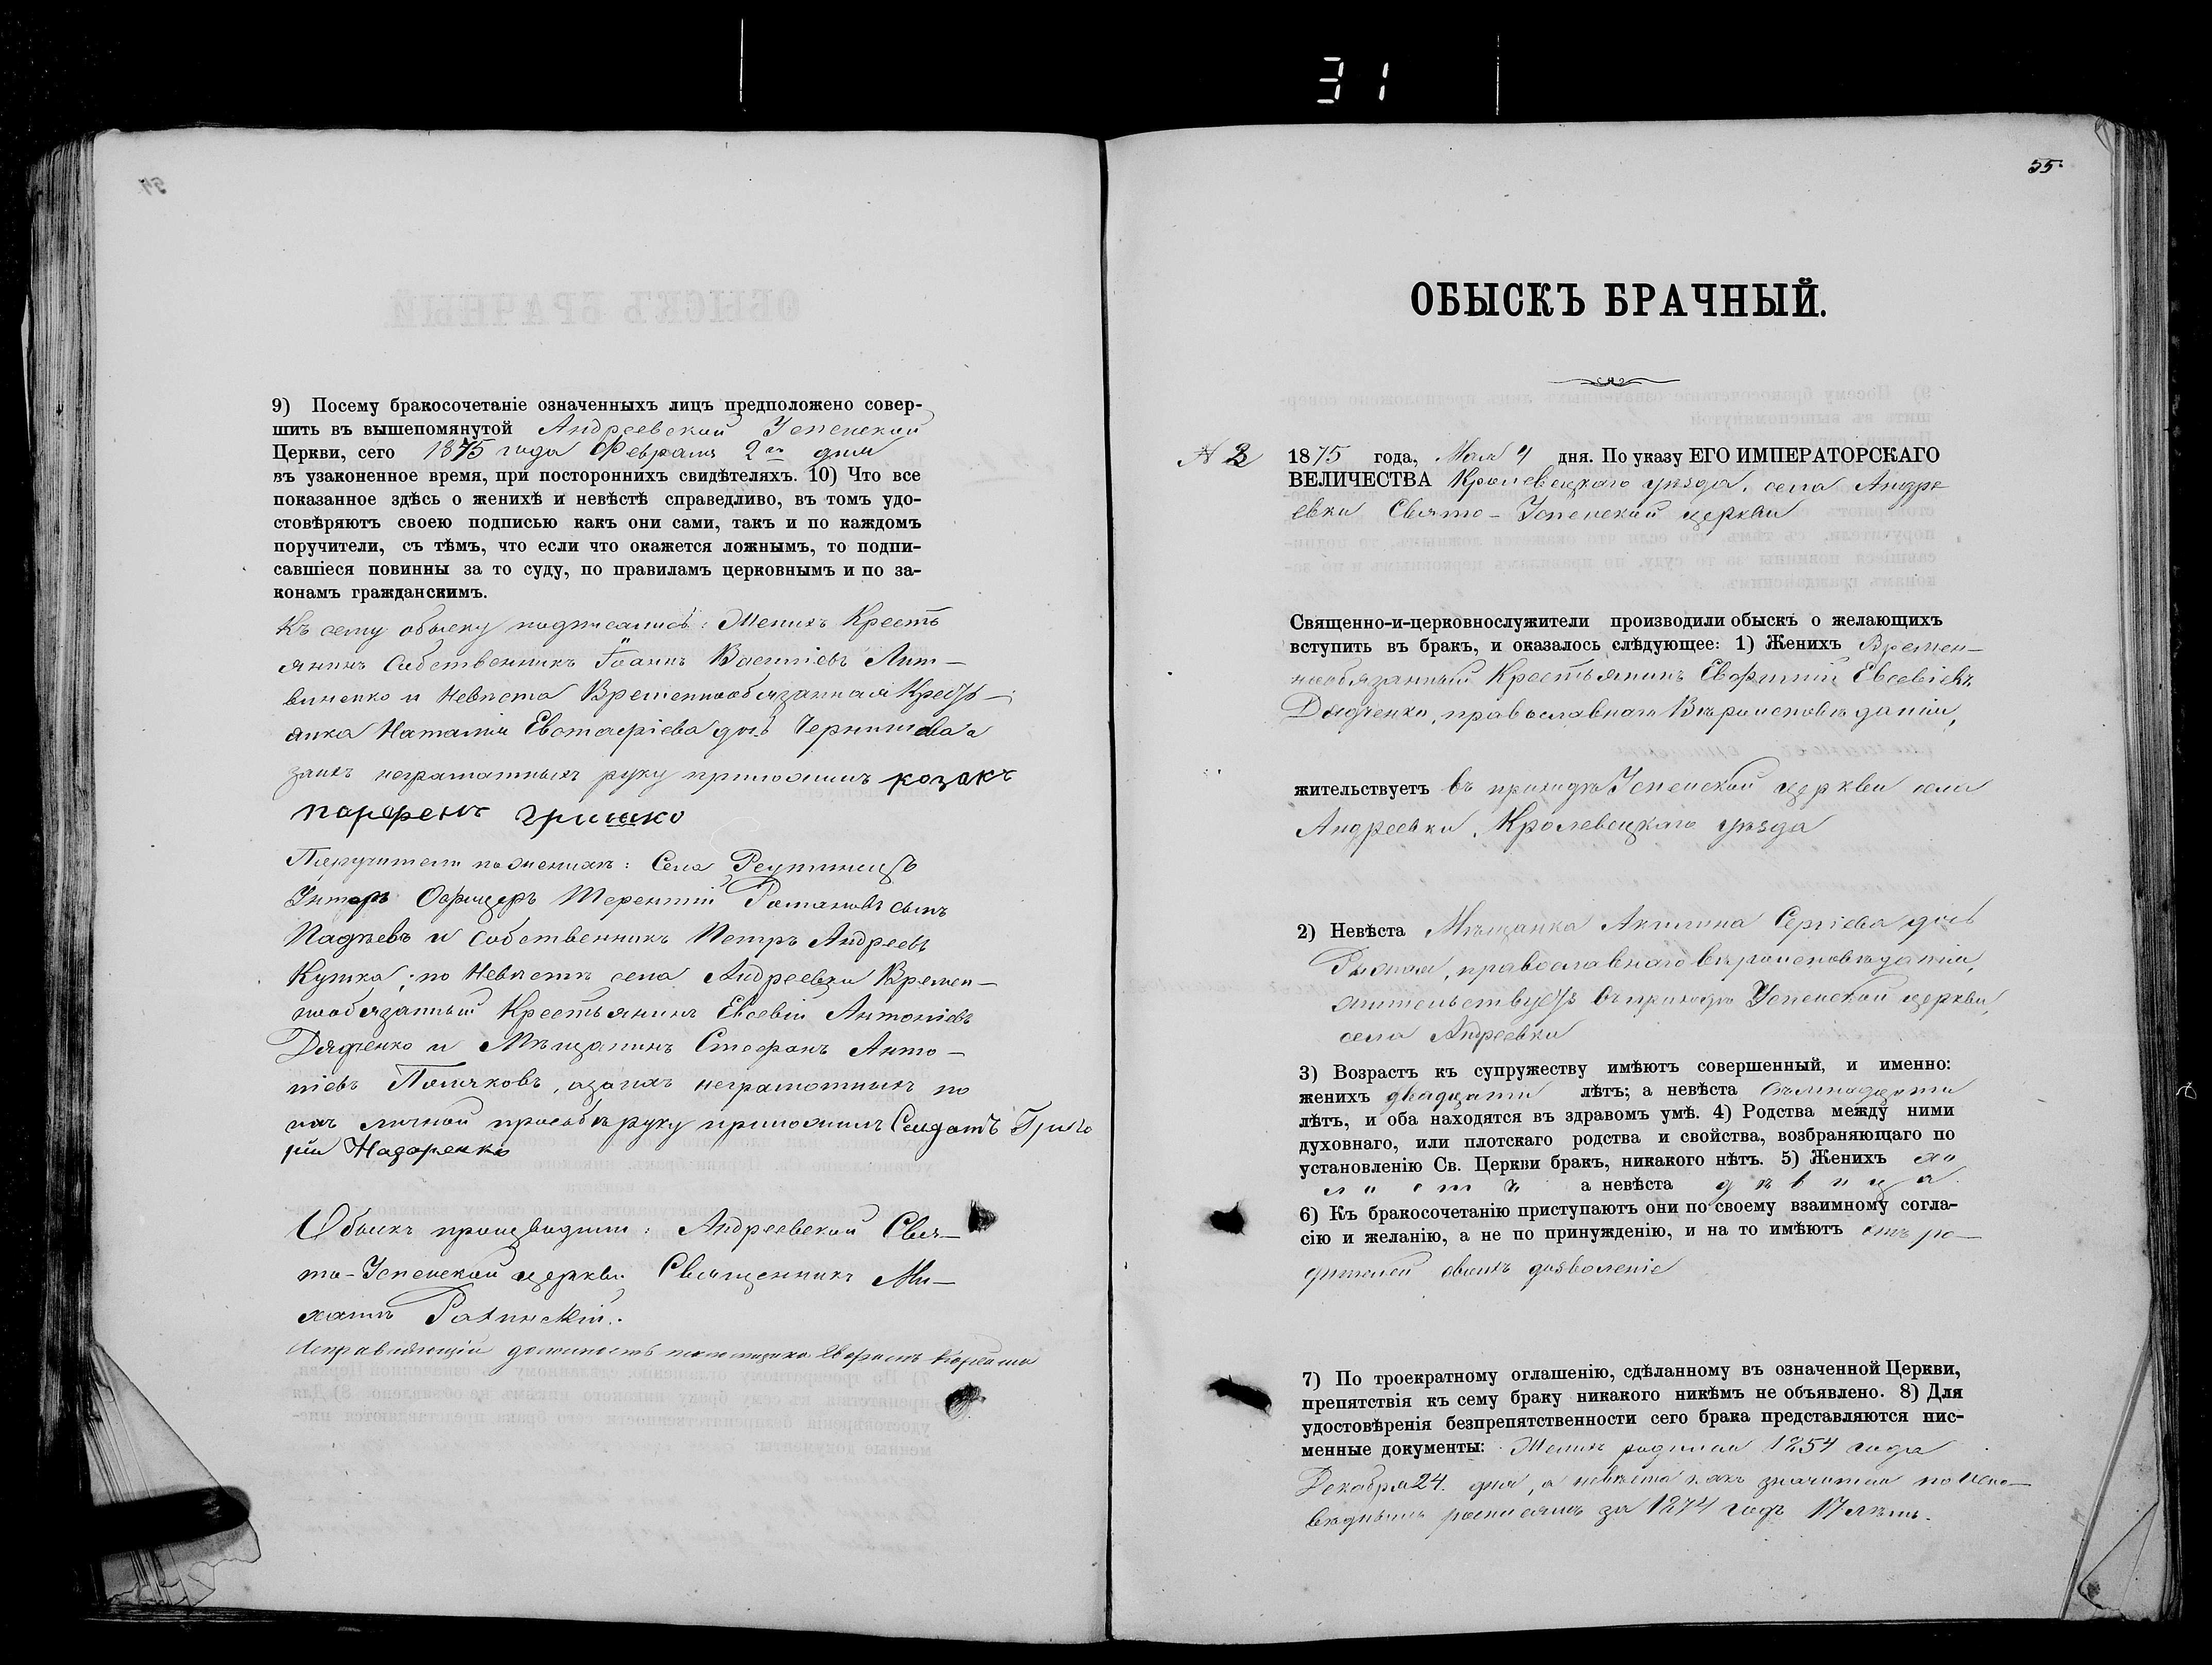 31
9) Посему бракосочетаніе означенныхъ лицъ предположено совер-
шить въ вышепомянутой Андреевской Успенской
Церкви, сего 1875 года Февраля 2го дня
въ узаконенное время, при постороннихъ свидѣтеляхъ. 10) Что все
показанное здѣсь о женихѣ и невѣстѣ справедливо, въ томъ удо-
стовѣряютъ своею подписью какъ они сами, такъ и по каждомъ
поручители, съ тѣмъ, что если что окажется ложнымъ, то подпи-
савшіеся повинны за то суду, по правиламъ церковнымъ и по за-
конамъ гражданскимъ.
Къ сему обыску подписались: Женихъ Кресть
янинъ Собственникъ Іоаннъ Лит-
виненко и Невѣста Временнообязанная Крест-
янка Наталія Евстафіева дочь
неграмотныхъ руку приложилъ козакъ
парфенъ гришко
Поручители по женихѣ: Села Реутинецъ
Унтеръ Офицеръ Терентій Романовъ сынъ
и Собственникъ Петръ Андреевъ
Кушка; по Невѣстѣ села Андреевки Времен-
нообязанный Крестьянинъ Евсевій Антоніевъ
Дядченко и Мѣщанинъ Стефанъ Анто-
ніевъ Поляковъ, а за нихъ неграмотныхъ по
ихъ личной просьбѣ руку приложилъ Солдатъ Григо
рій Назаренко
Обыскъ производили: Андреевской Свя-
то-Успенской церкви Священникъ Ми-
хаилъ
Исправляющій должность псаломщика
55
ОБЫСКЪ БРАЧНЫЙ.
№ 3 1875 года, Мая 4 дня. По указу ЕГО ИМПЕРАТОРСКАГО
ВЕЛИЧЕСТВА Кролевецкаго уѣзда, села Андре
евки Свято-Успенской церкви
Священно-и-церковнослужители производили обыскъ о желающихъ
вступить въ бракъ, и оказалось слѣдующее: 1) Женихъ Времен-
нообязанный Крестьянинъ Евфимій Евсевіевъ
Дядченко, православнаго Вѣроисповѣданія,
жительствуетъ въ приходѣ Успенской церкви села
Андреевки, Кролевецкаго уѣзда
2) Невѣста Мѣщанка Акилина Сергіева дочь
православнаго вѣроисповѣданія,
жительствуетъ въ приходѣ Успенской церкви,
села Андреевки
3) Возрастъ къ супружеству имѣютъ совершенный, и именно:
женихъ двадцати лѣтъ; а невѣста
лѣтъ, и оба находятся въ здравомъ умѣ. 4) Родства между ними
духовнаго, или плотскаго родства и свойства, возбраняющаго по
установленію Св. Церкви бракъ, никакого нѣтъ. 5) Женихъ хо
лостъ а невѣста дѣвица
6) Къ бракосочетанію приступаютъ они по своему взаимному согла-
сію и желанію, а не по принужденію, и на то имѣютъ отъ ро-
дителей своихъ дозволеніе
7) По троекратному оглашенію, сдѣланному въ означенной Церкви,
препятствія къ сему браку никакого никѣмъ не объявлено. 8) Для
удостовѣренія безпрепятственности сего брака представляются пис-
менные документы: Женихъ родился 1854 года
Декабря 24. дня, а невѣста какъ значится по Испо-
вѣднымъ росписямъ за 1874 годъ 17 лѣтъ.